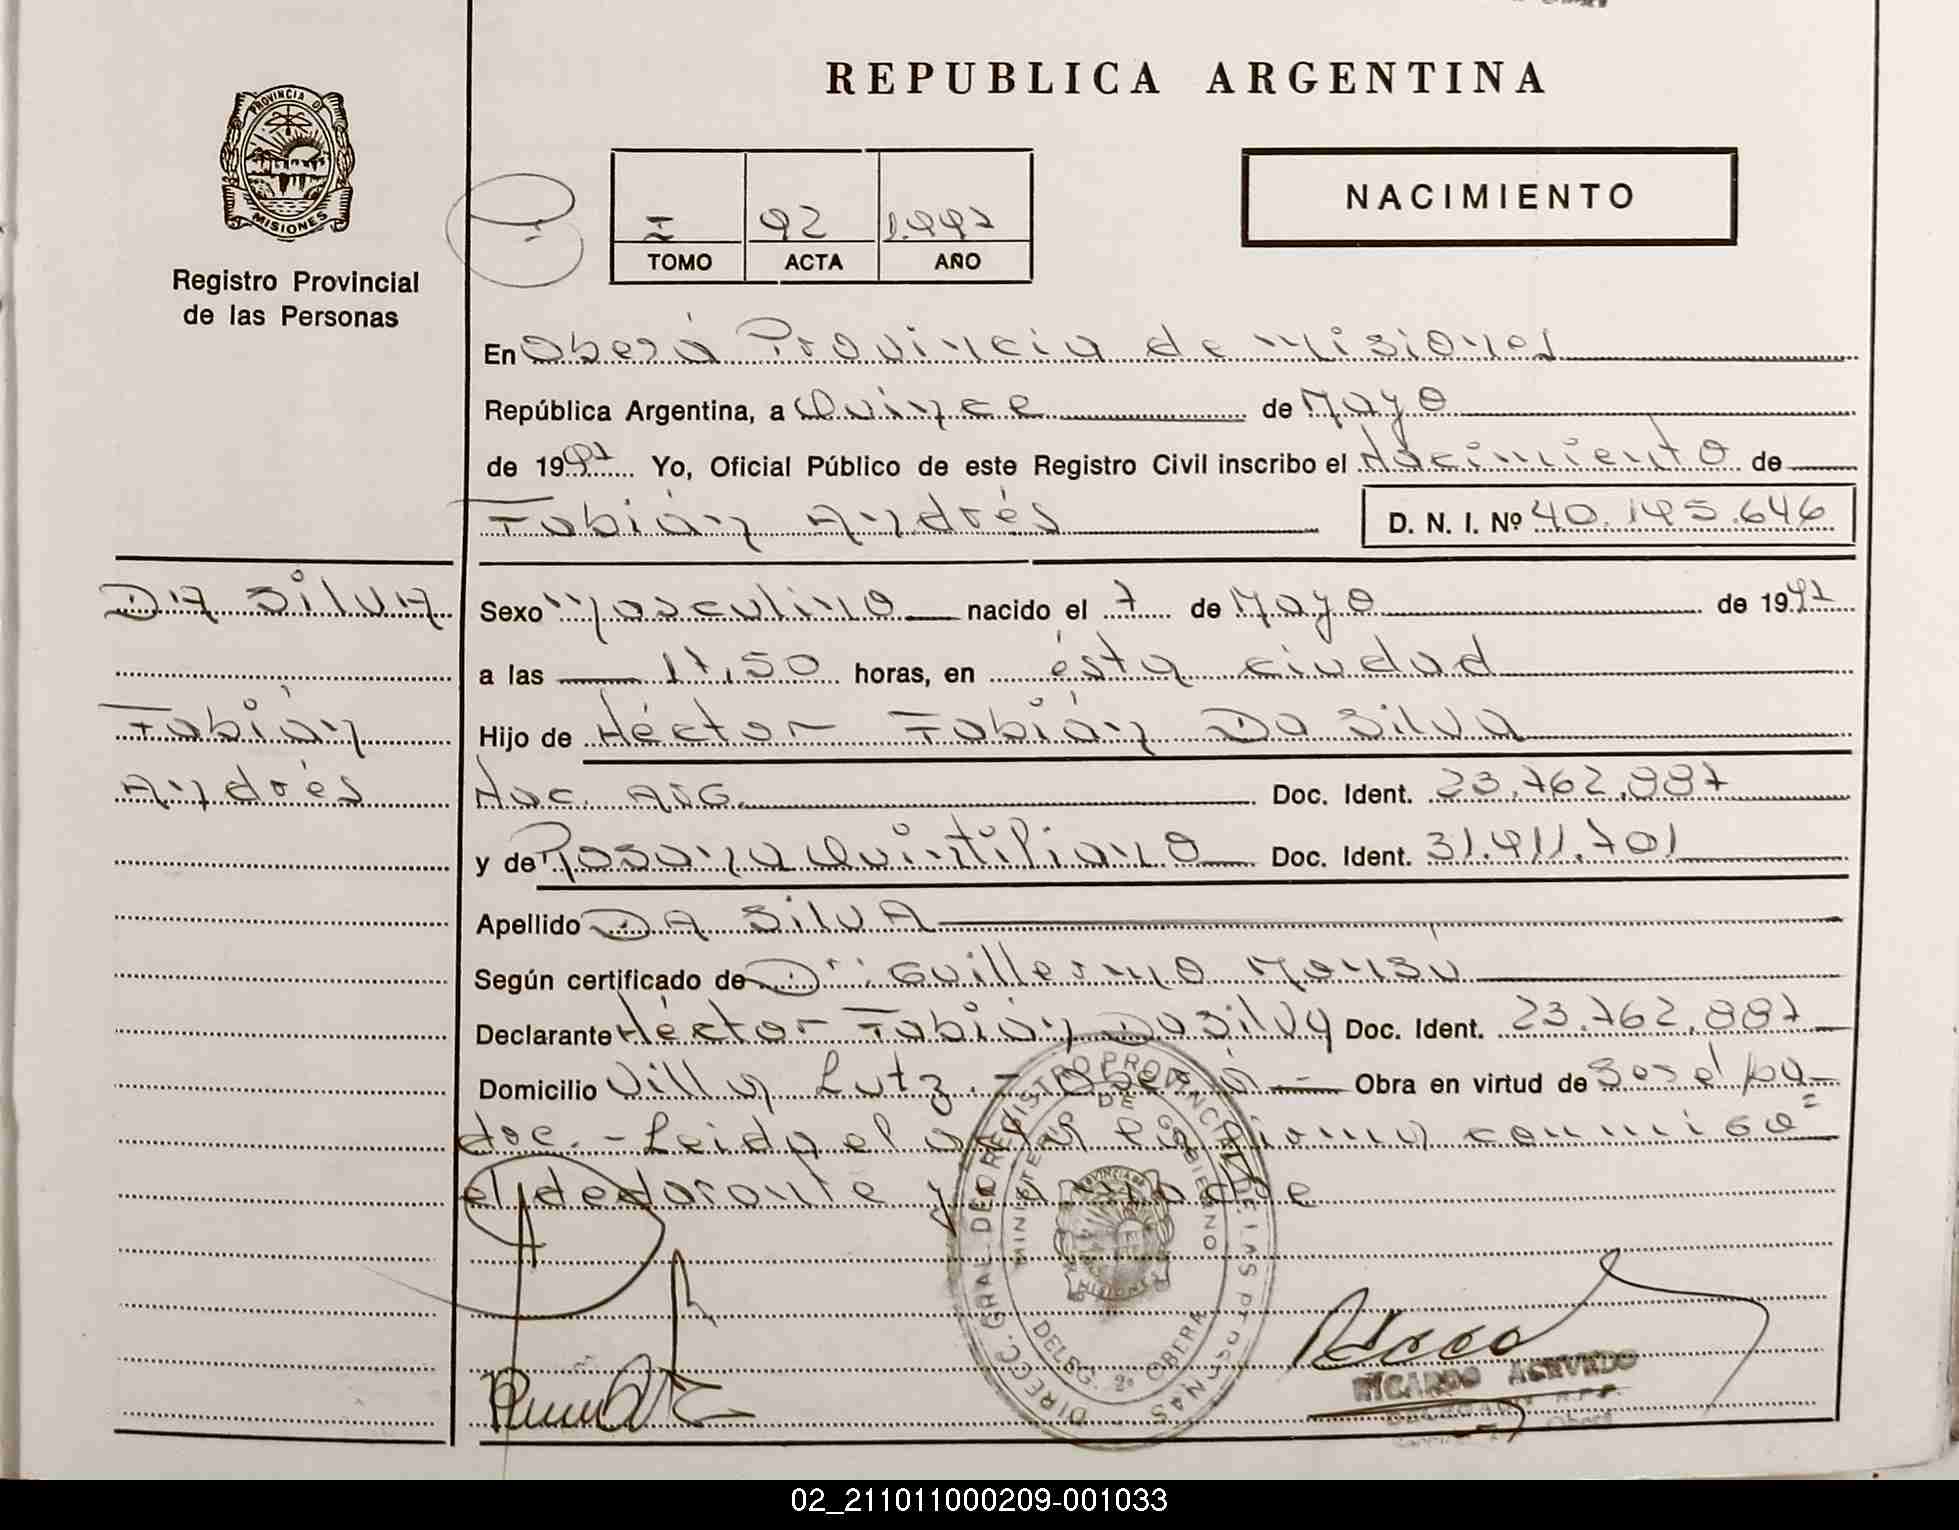 REPUBLICA ARGENTINA
PROVINCIA DE
MISIONES
Registro Provincial
de las Personas
I 92 1.997
TOMO ACTA AÑO
NACIMIENTO
En Oberá Provincia de Misiones
República Argentina, a Quince de Mayo
de 1997 Yo, Oficial Público de este Registro Civil inscribo el Nacimiento de
Fabián Andrés D. N. I. Nº 40.195.646
DA SilVA
Fabián
Andrés
Sexo Masculino nacido el 7 de Mayo de 1997
a las 17,50 horas, en ésta ciudad
Hijo de Héctor Fabián Da Silva
Nac. ARG. Doc. Ident. 23.762.887
y de Rosana Quintiliano Doc. Ident. 31.911.701
Apellido DA SilVA
Según certificado de Dr: Guillermo
Declarante Héctor Fabián Da Silva Doc. Ident. 23.762.887
Domicilio Villa Lutz.- Oberá - Obra en virtud de
doc. - Leida el acta la firma conmigo
el declarante y la madre
DIRECC. GRAL DE REGISTRO PROVINCIAL DE LAS PERSONAS
MINISTERIO DE GOBIERNO
DELEG. 2ª OBERA
RICARDO ACEVEDO
02_211011000209-001033